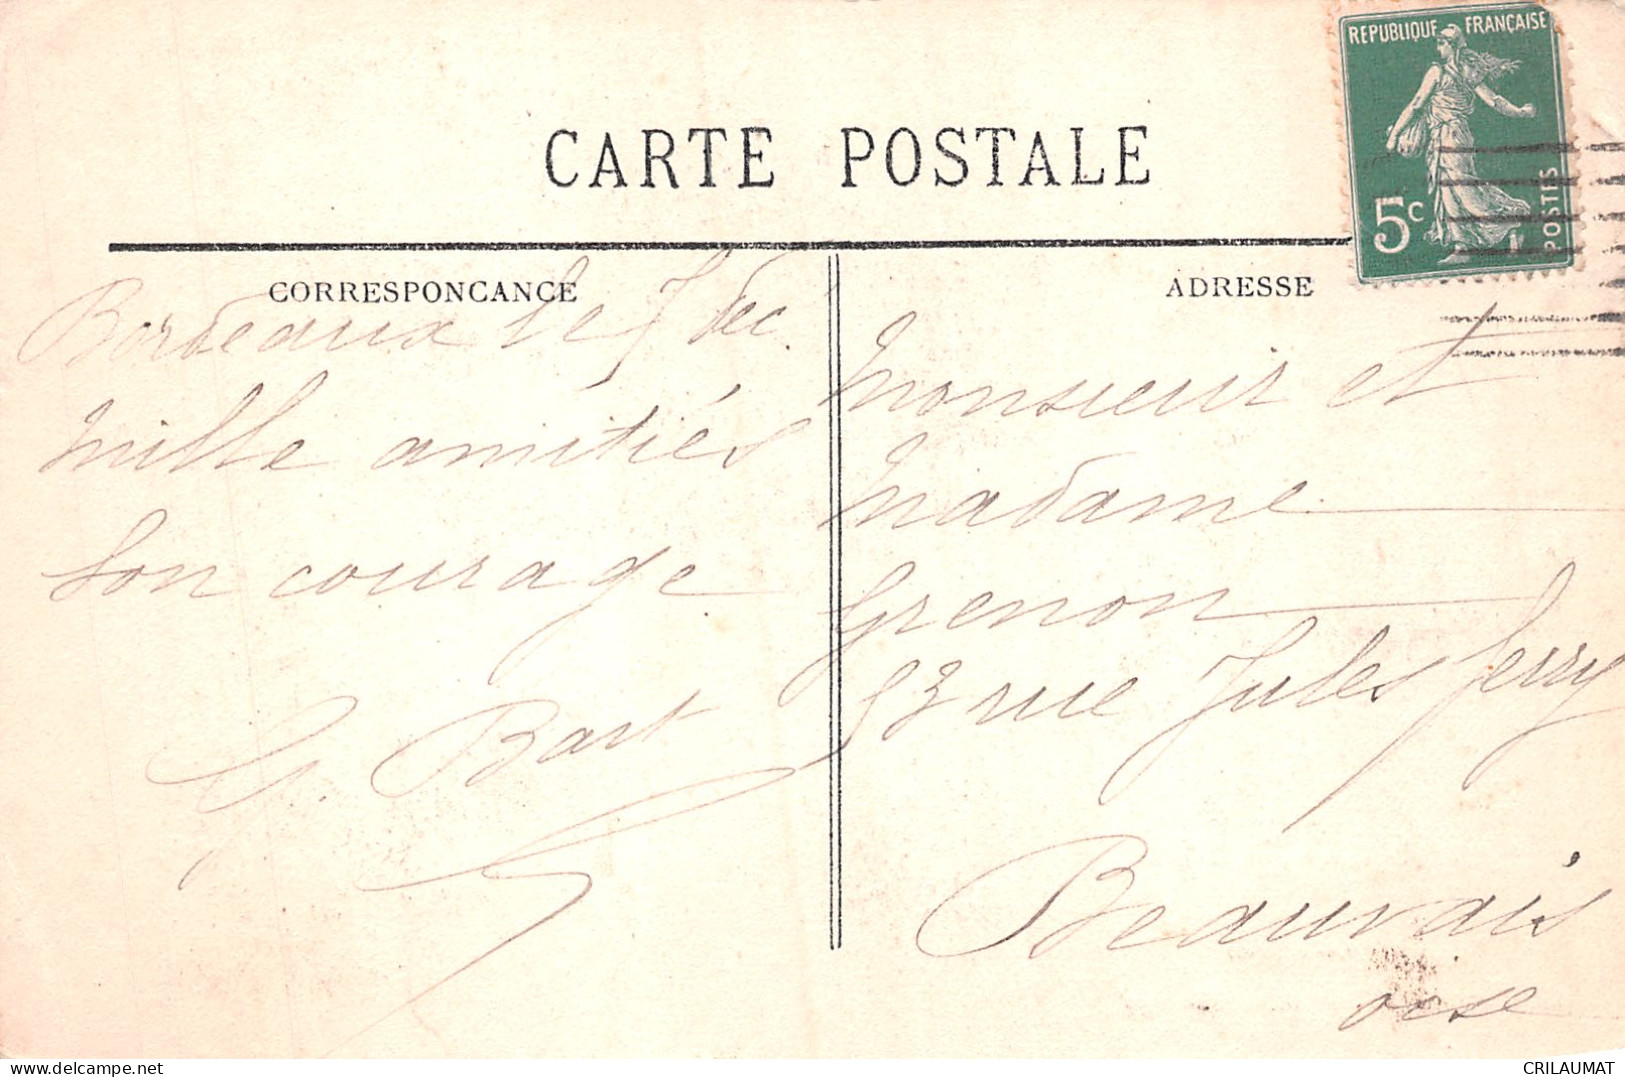 CARTE POSTALE
RÉPUBLIQUE FRANÇAISE
5c
POSTES
CORRESPONCANCE
Bordeaux le 7 dec.
Mille amitiés
bon courage
G. Bart
ADRESSE
Monsieur et
Madame
Grenon
53 rue Jules Ferry
Beauvais
oise
delcampe.net
CRILAUMAT